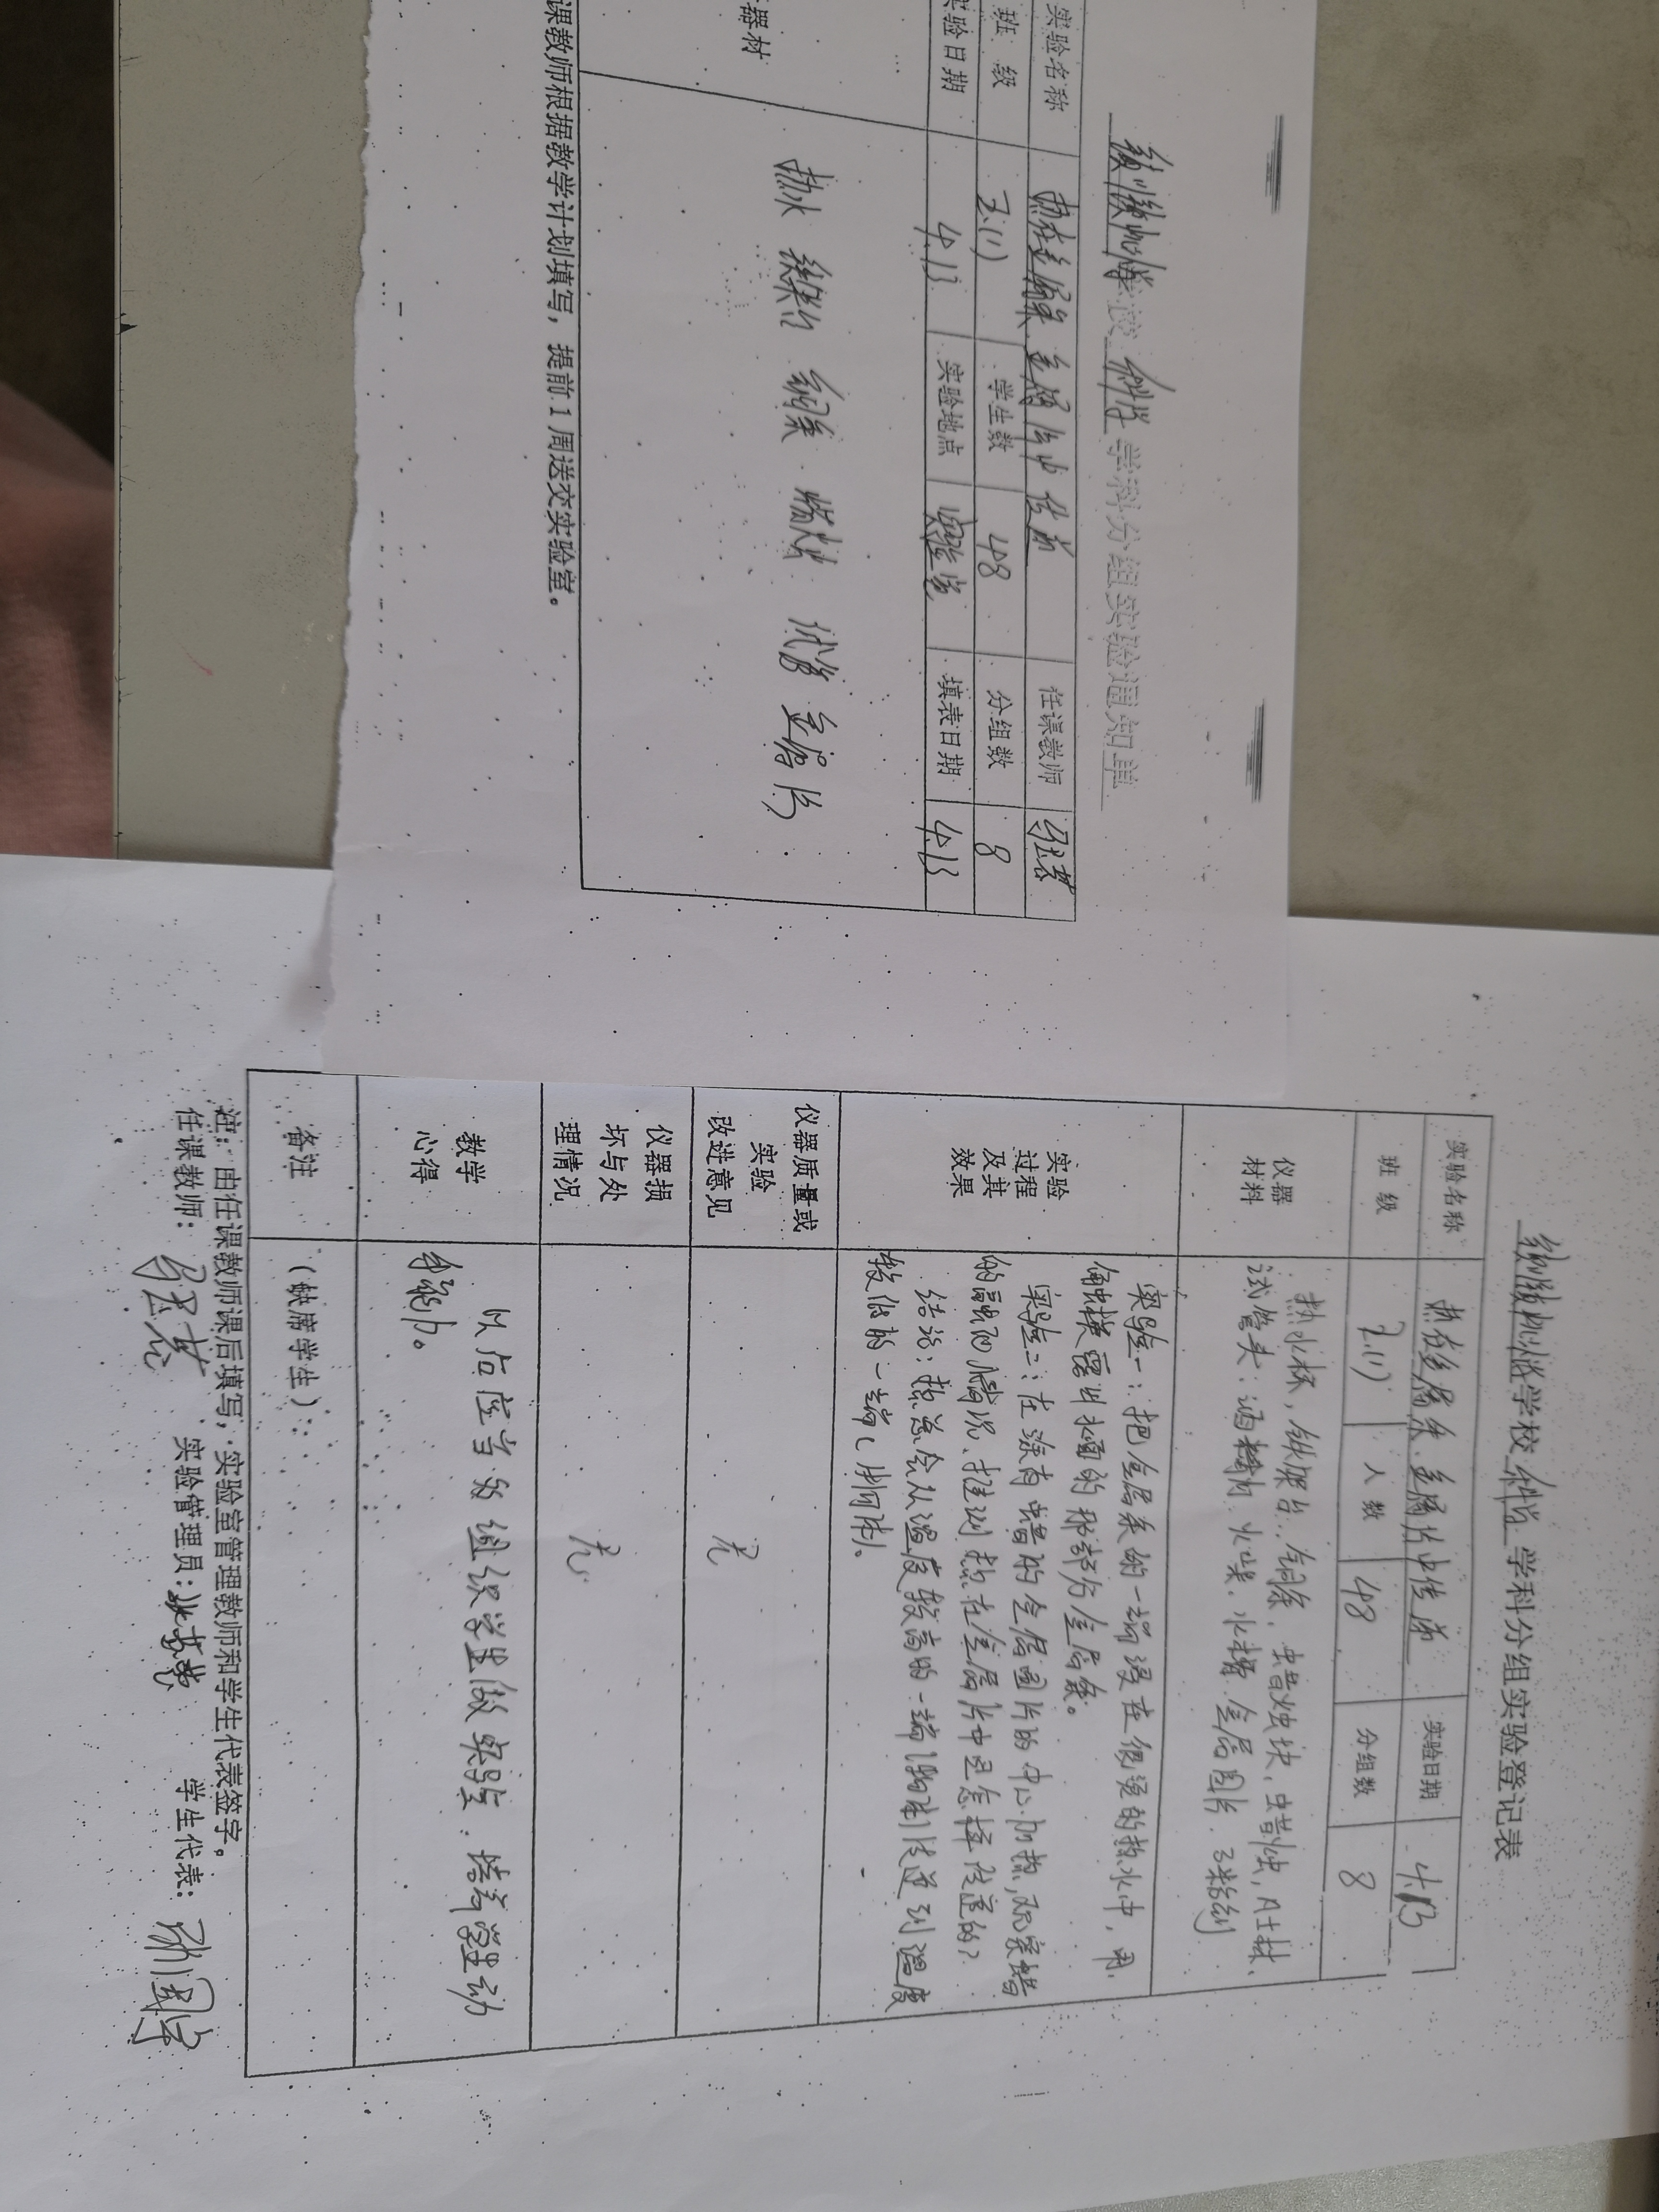 学科分组实验通知单
实验名称 热在金属条 金属片中传递 任课教师
班 级 五(1) 学生数 48 分组数 8
实验日期 4.13 实验地点 实验室 填表日期 4.13
器材
热水 铁架台 铜条 蜡烛 试管 金属片
课教师根据教学计划填写，提前1周送交实验室。
学校 科学 学科分组实验登记表
实验名称 热在金属条、金属片中传递 实验日期 4.13
班 级 五(1) 人 数 48 分组数 8
仪器
材料
热水杯，铁架台、铜条、蜡烛块、蜡烛，凡士林、
试管夹、酒精灯、火柴、金属圆片
实验
过程
及其
效果
实验一：把金属条的一端浸在很烫的热水中，用
触摸露出水面的那部分金属条。
实验二：在涂有蜡的金属圆片的中心加热，观察蜡
的融化情况、推测热在金属片中是怎样传递的？
结论：热总会从温度较高的一端(物体)传递到温度
较低的一端(物体)。
仪器质量或
实验
改进意见
无
仪器损
坏与处
理情况
无
教学
心得
以后应当多组织学生做实验、培养学生动
手能力。
备注
（缺席学生）：
注：由任课教师课后填写，实验室管理教师和学生代表签字。
任课教师： 实验管理员： 学生代表：